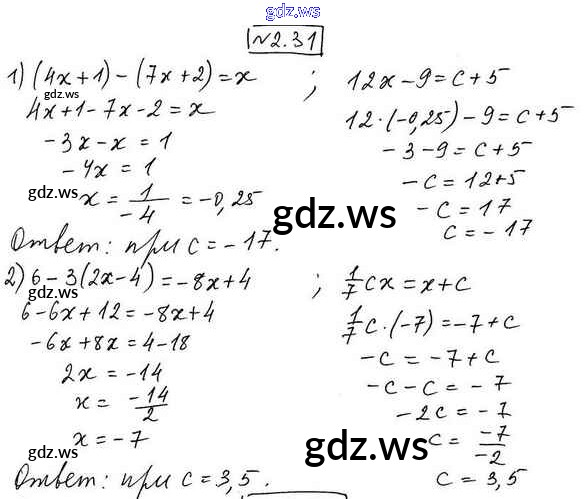 gdz.ws
№2.31
1) (4x+1)-(7x+2)=x ; 12x-9=c+5
gdz.ws
4x+1-7x-2=x 12·(-0,25)-9=c+5
-3x-x=1 -3-9=c+5
-4x=1 -c=12+5
gdz.ws x=1/-4=-0,25 gdz.ws -c=17
c=-17
Ответ: при c=-17.
2) 6-3(2x-4)=-8x+4 ; 1/7 cx=x+c
gdz.ws
6-6x+12=-8x+4 1/7 c·(-7)=-7+c
-6x+8x=4-18 -c=-7+c
2x=-14 -c-c=-7
x=-14/2 -2c=-7
gdz.ws x=-7 gdz.ws c=-7/-2
Ответ: при c=3,5. c=3,5